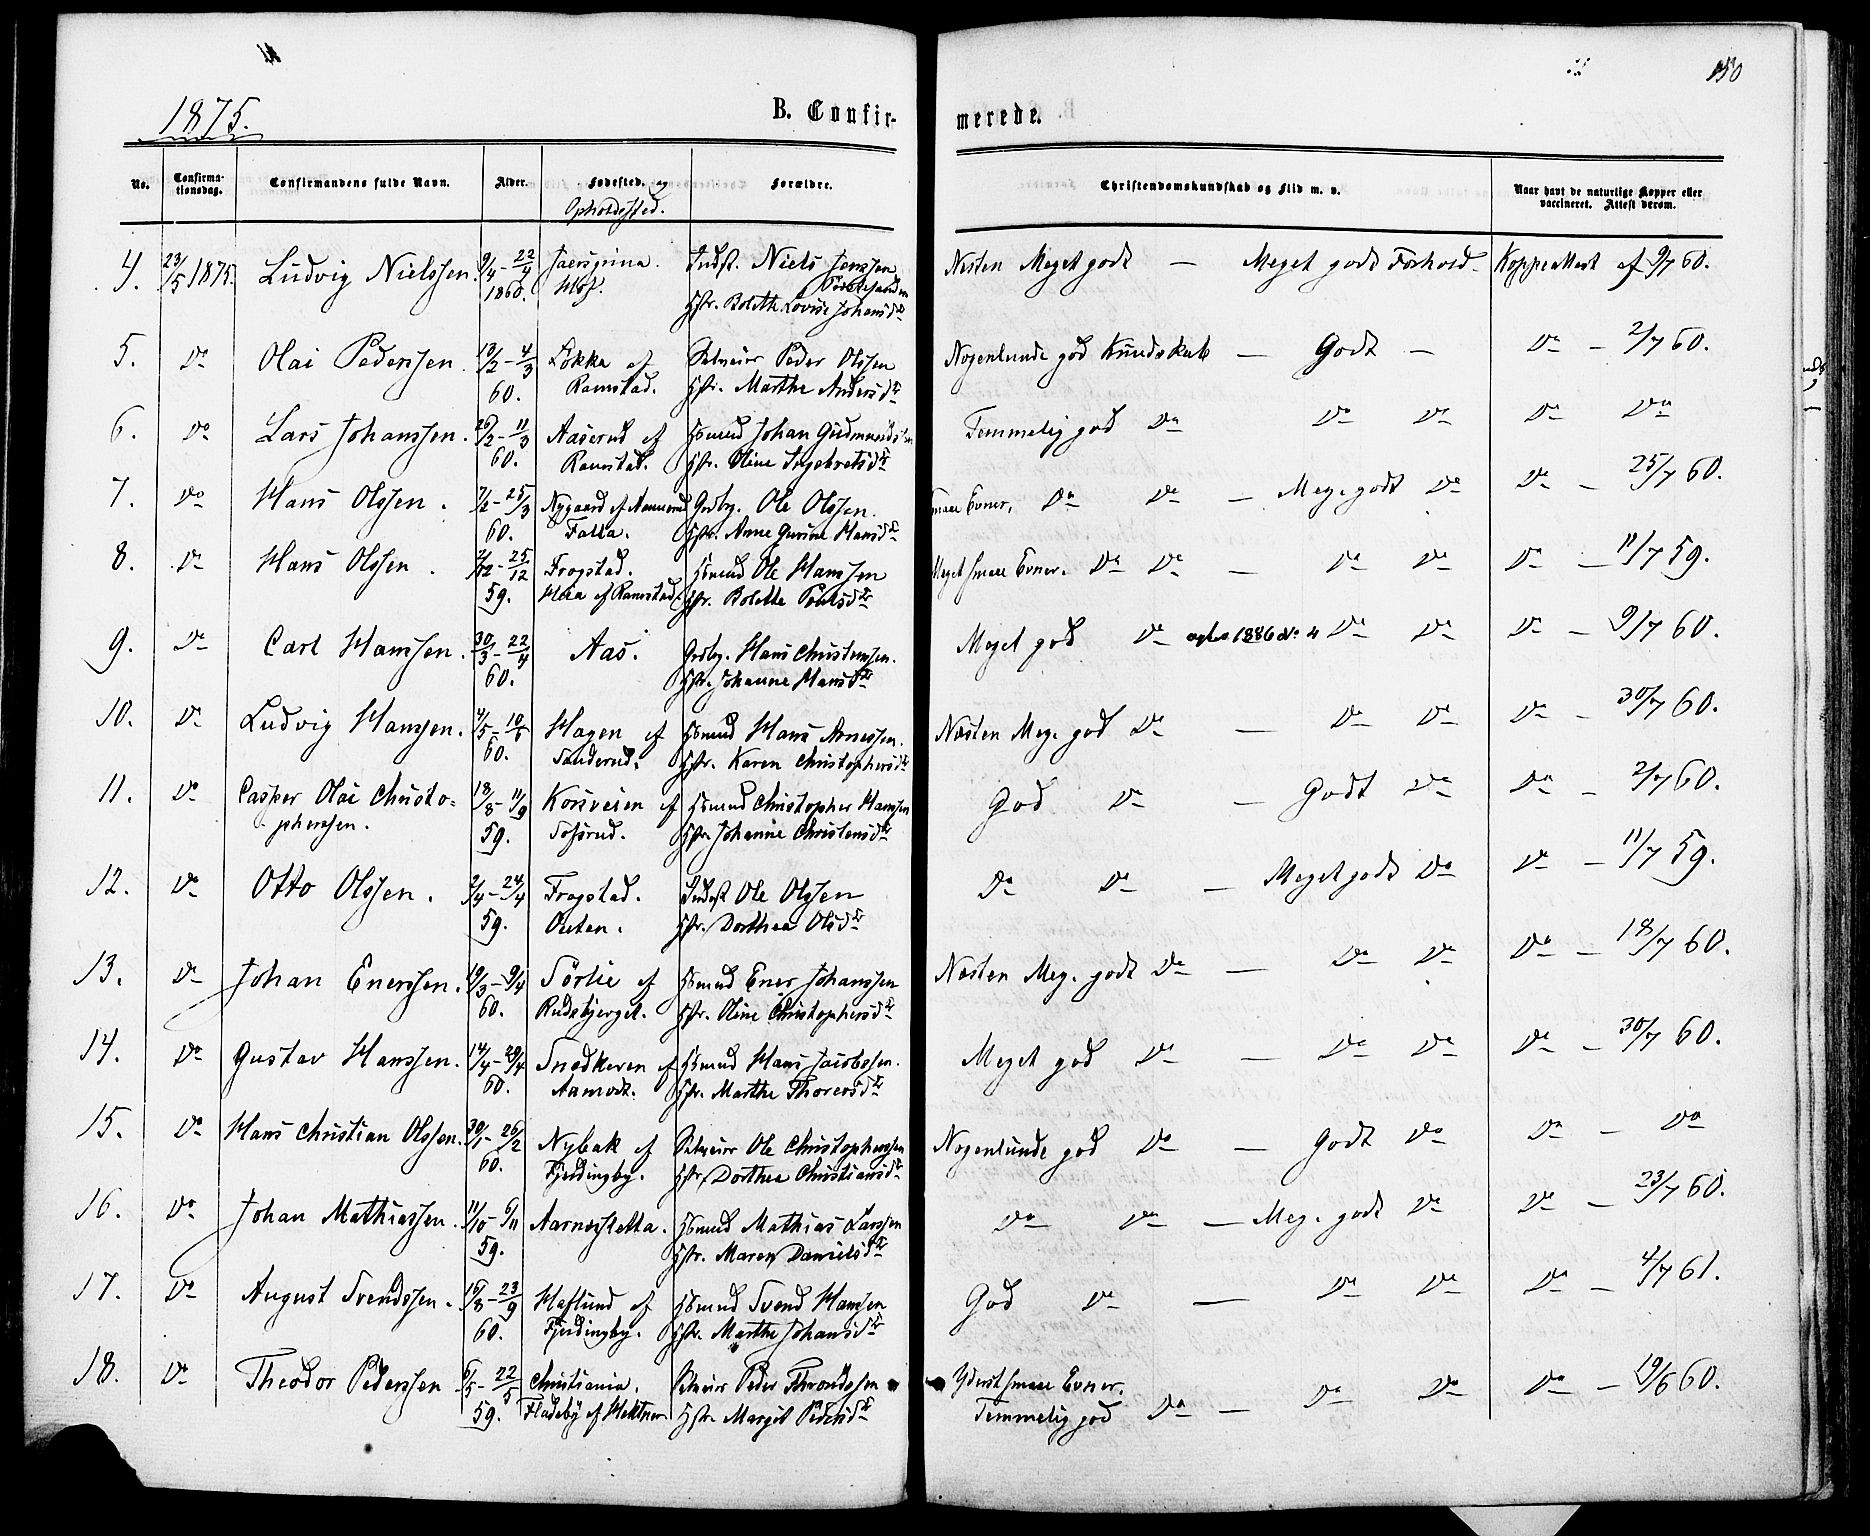 150
1875.
B. Confir-
merede.
No.
Confirma-
tionsdag.
Confirmandens fulde Navn.
Alder.
Fødested. og
Opholdssted.
Forældre.
Christendomskundskab og Flid m. v.
Naar havt de naturlige Kopper eller
vaccineret. Attest derom.
4. 23/5 1875. Ludvig Nielssen. 9/4 - 22/4 1860. Indst. Niels Jenssen
Hfr. Bolethe Lovise Johansdtr
Næsten Meget godt — Meget godt Forhold. Koppeattest af 9/7 60.
5. Do Olai Pederssen. 13/2 - 4/3 60. Løkka af
Ramstad.
Selveier Peder Olssen
Hfr. Marthe Andersdtr
Nogenlunde god Kundskab — Godt — Do — 2/7 60.
6. Do Lars Johanssen. 26/2 - 11/3 60. Aaserud af
Ramstad.
Hsmnd Johan Gudmundssen
Hfr. Oline Ingebretsdtr
Temmelig god Do Do Do Do Do
7. Do Hans Olssen. 7/2 - 25/3 60. Nygaard af
Falla.
Grdbr. Ole Olssen.
Hfr. Anne Gurine Hansdtr
Smaa Evner. Do Do — Meg. godt Do Do — 25/7 60.
8. Do Hans Olssen. 2/12 - 25/12 59. Frogstad.
af Ramstad.
Hsmnd Ole Hanssen
Hfr. Bolette Poulsdtr
Meget smaa Evner. Do Do — Do Do Do — 11/7 59.
9. Do Carl Hanssen. 30/3 - 22/4 60. Aas.
Grdbr. Hans Christenssen.
Hfr. Johanne Hansdtr
Meget god Do 1886 No 4 Do Do Do — 9/7 60.
10. Do Ludvig Hanssen. 4/5 - 10/6 60. Hagen af
Sanderud.
Hsmnd Hans Arnessen.
Hfr. Karen Christophersdtr
Næsten Meg. god Do — Do Do Do — 30/7 60.
11. Do Casper Olai Christo=
phersen. 18/8 - 11/9 59. Korsveien af
Hsmnd Christopher Hanssen
Hfr. Johanne Christensdtr
God Do — Godt Do Do — 2/7 60.
12. Do Otto Olssen. 2/4 - 24/4 59. Frogstad.
Indst Ole Olssen
Hfr. Dorthea Olsdtr
Do Do — Meget godt Do Do — 11/7 59.
13. Do Johan Enerssen. 19/3 - 9/4 60. Sørlie af
Rudsbjerget.
Hsmnd Ener Johanssen
Hfr. Oline Christophersdtr
Næsten Meg. godt Do — Do Do Do — 18/7 60.
14. Do Gustav Hanssen. 14/4 - 29/4 60. Snedkeren af
Aamodt.
Hsmnd Hans Jacobssen.
Hfr. Marthe Thorersdtr
Meget god Do — Do Do Do — 30/7 60.
15. Do Hans Christian Olssen. 30/1 - 26/2 60. Nybak af
Fjeldingby.
Selveier Ole Christopherssen
Hfr. Dorthea Christiansdtr
Nogenlunde god Do — Godt Do Do — Do
16. Do Johan Mathiassen. 11/10 - 6/11 59. Aarnesstetta.
Hsmnd Mathias Larssen
Hfr. Maren Danielsdtr
Do Do — Meg. godt Do Do — 23/7 60.
17. Do August Svendssen. 16/8 - 23/9 60. Haflund af
Fjeldingby.
Hsmnd Svend Hanssen
Hfr. Marthe Johansdtr
God Do — Do Do Do — 4/7 61.
18. Do Theodor Pederssen 6/5 - 22/5 59. Christiania.
Fladeby af
Selveier Peder Throndssen
Hfr. Margit Pedersdtr
Yderst smaa Evner.
Temmelig god Do — Do Do Do — 19/6 60.